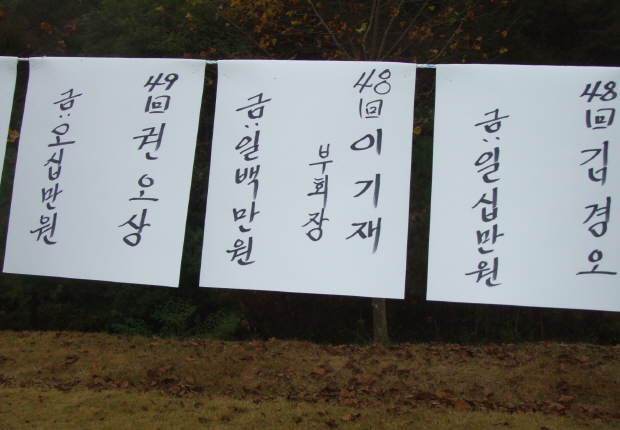 49回 권오상
금:오십만원
40回 이기재
부회장
금:일백만원
48回 김경오
금:일십만원